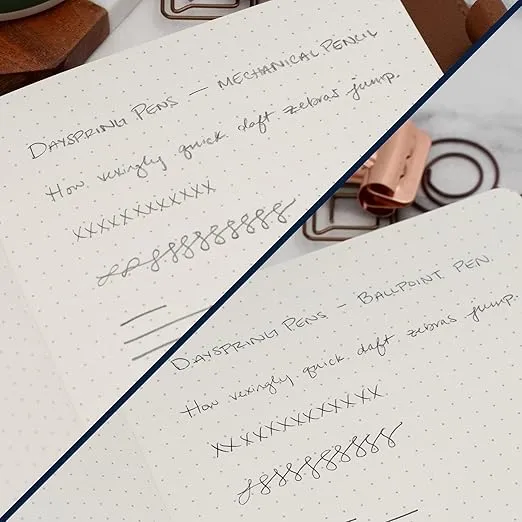 DAYSPRING PENS — MECHANICAL PENCIL
How vexingly quick daft zebras jump.
XXXXXXXXXXXX
DAYSPRING PENS – BALLPOINT PEN.
How vexingly quick daft zebras jump.
XX XXXXXXXXXXX